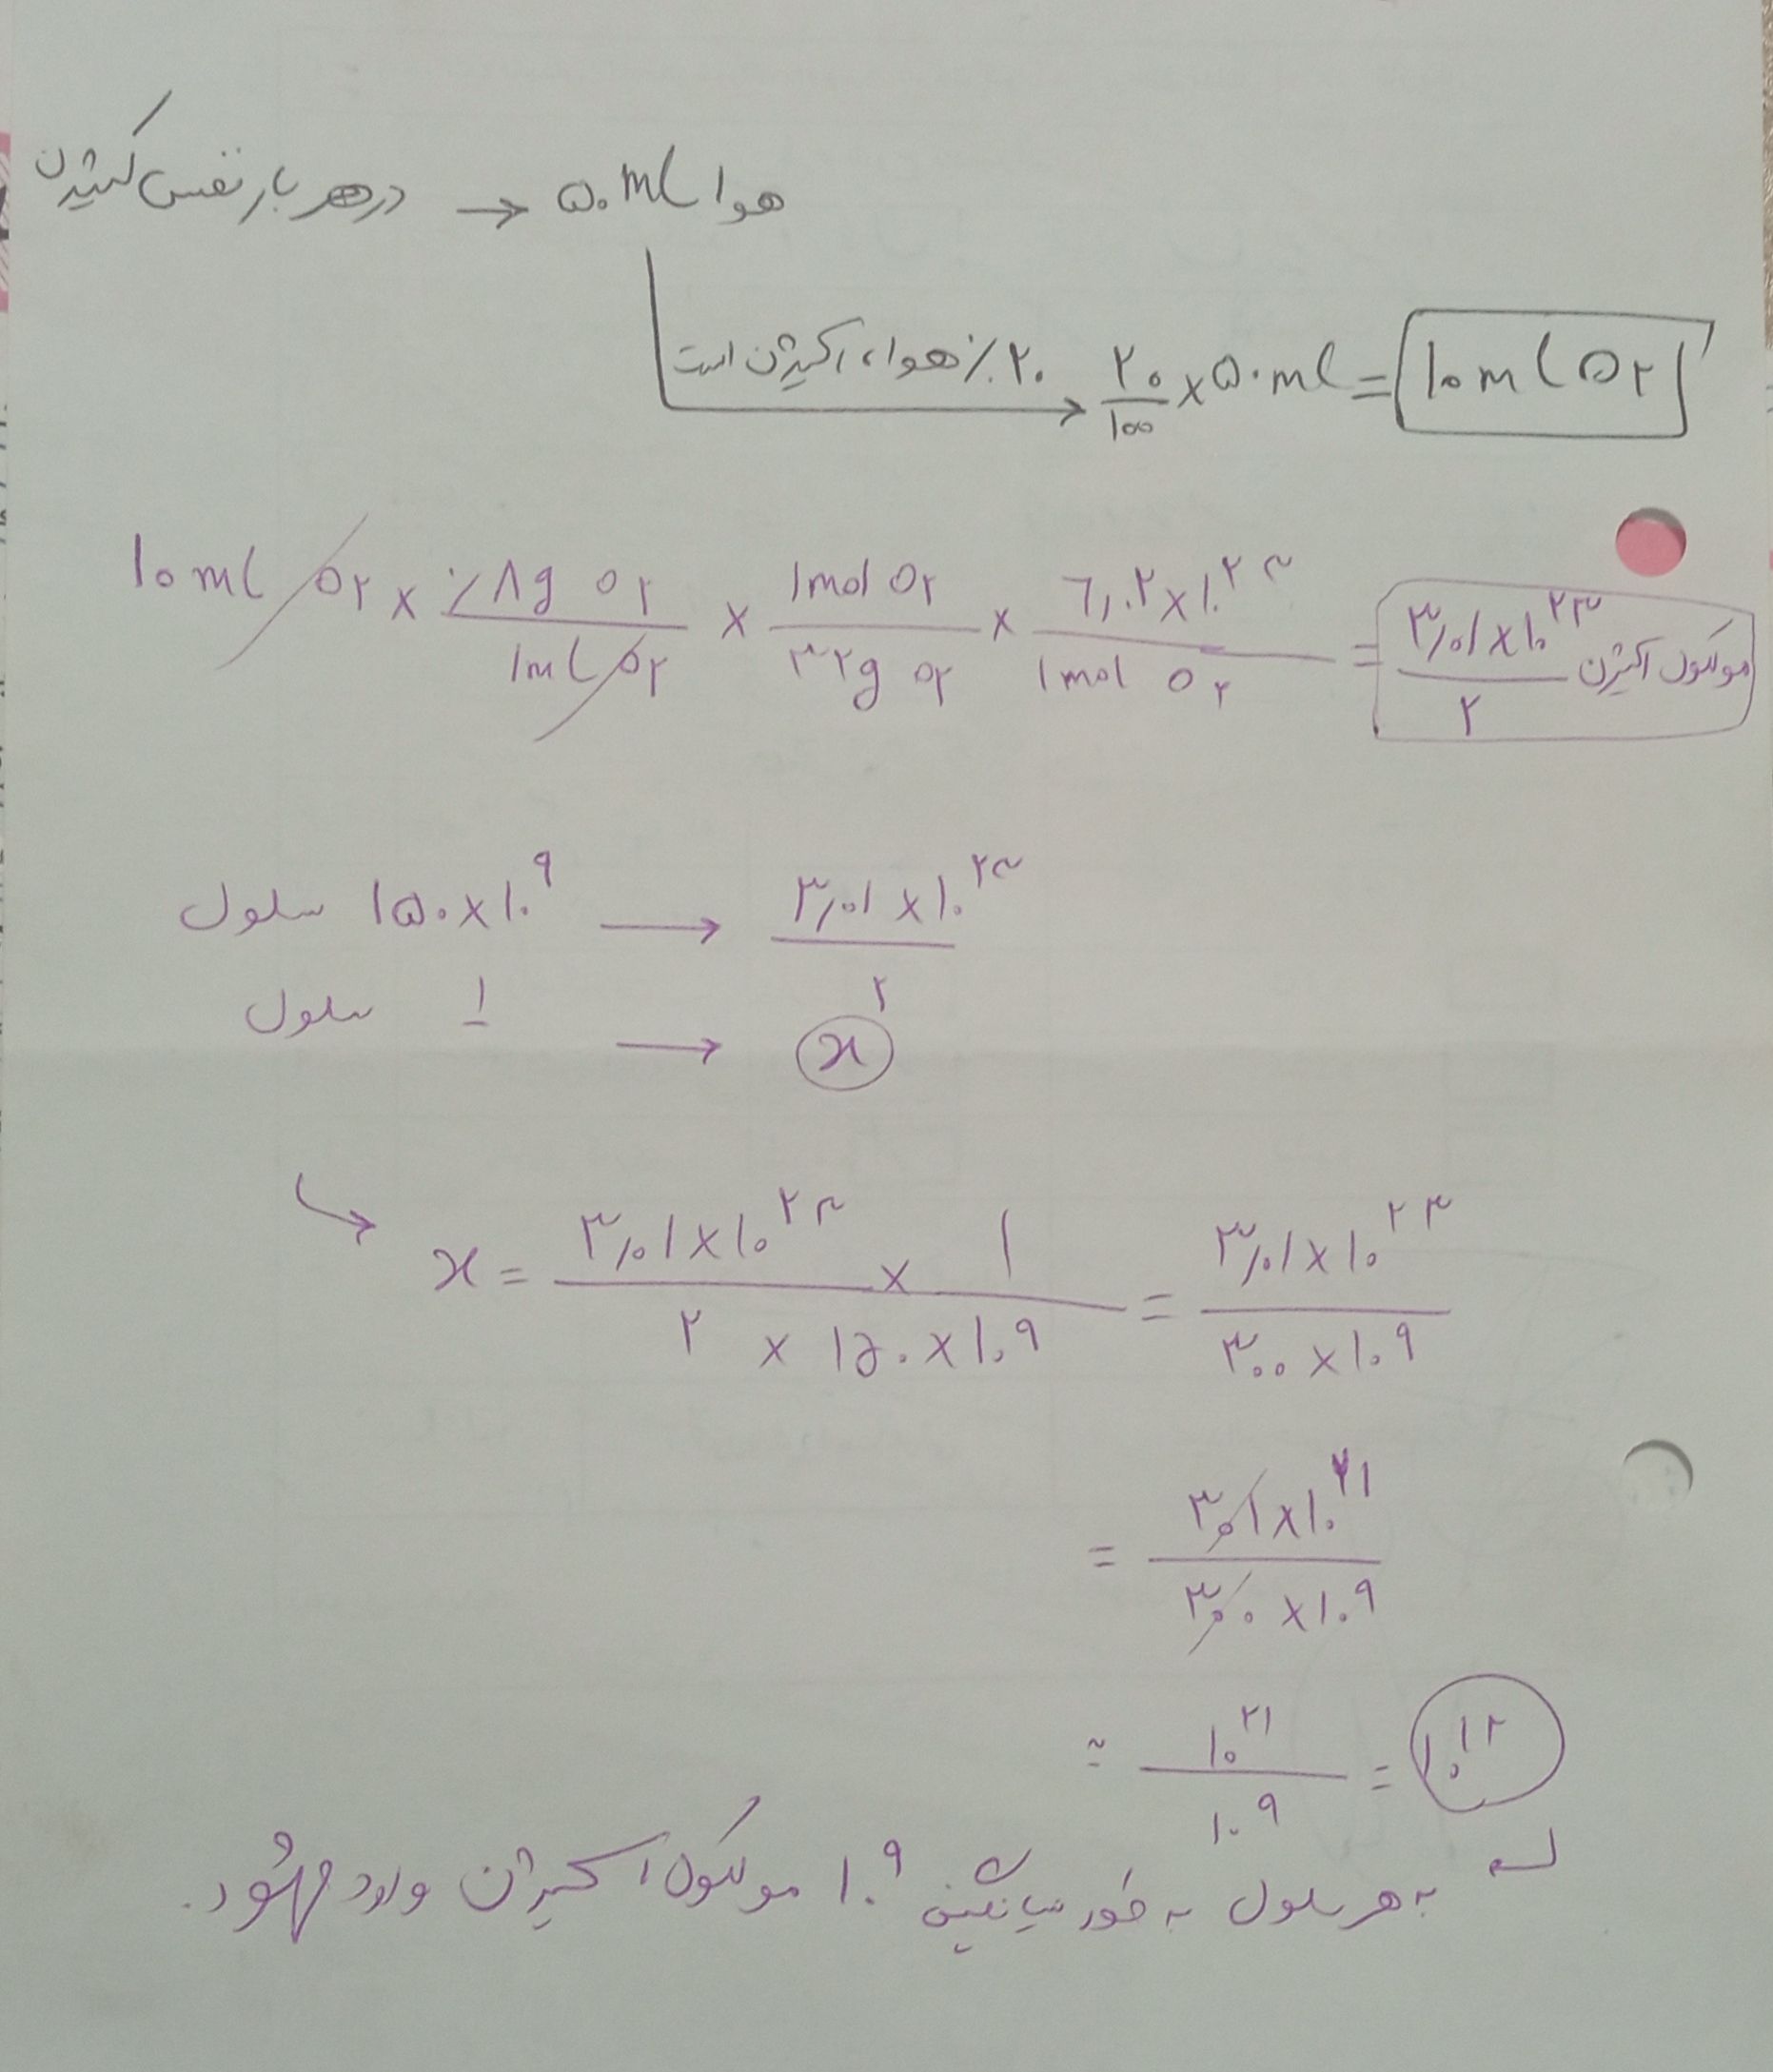 در هر بار نفس کشیدن → ۵۰ mL هوا
۲۰٪ هوا، اکیژن است → ۲۰/۱۰۰ × ۵۰ mL = ۱۰ mL O۲
۱۰ mL O۲ × ٪۸g O۲/۱mL O۲ × ۱mol O۲/۳۲g O۲ × ۶٫۰۲×۱۰^۲۳/۱mol O۲ = ۳٫۰۱×۱۰^۲۳/۲ مولکول اکیژن
۱۵۰×۱۰^۹ سلول → ۳٫۰۱×۱۰^۲۳/۲
۱ سلول → x
x = ۳٫۰۱×۱۰^۲۳ × ۱/۲ × ۱۵۰×۱۰^۹ = ۳٫۰۱×۱۰^۲۳/۳۰۰×۱۰^۹
= ۳۰۱×۱۰^۲۱/۳۰۰×۱۰^۹
≃ ۱۰^۲۱/۱۰^۹ = ۱۰^۱۲
به هر سلول به طور میانگین ۱۰^۹ مولکول اکسیژن وارد میشود.